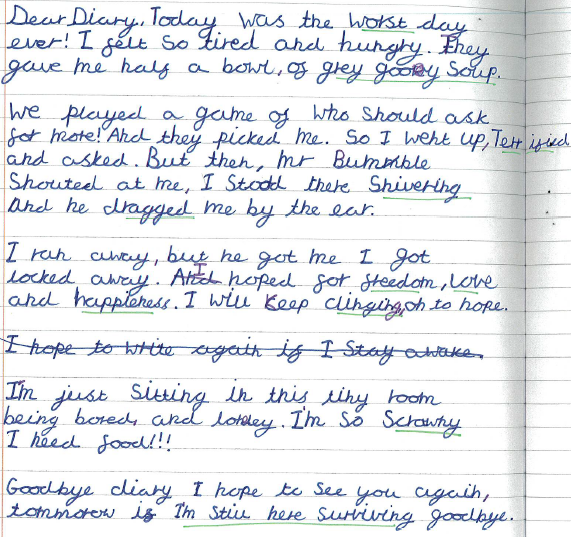 Dear Diary, Today was the worst day
ever! I felt so tired and hungry. They
gave me half a bowl, of grey gooey Soup.
We played a game of who should ask
for more! And they picked me. So I went up, Terrified
and asked. But then, mr Bummble
Shouted at me, I stodd there Shivering
And he dragged me by the ear.
I ran away, but he got me I got
locked away. And I hoped for freedom, love
and happieness. I will keep clinging, on to hope.
I hope to write again if I Stay awake.
I'm just Sitting in this tiny room
being bored, and lonley. I'm So Scrawny
I need food!!!
Goodbye diary I hope to See you again,
tommorow if I'm Still here Surviving goodbye.